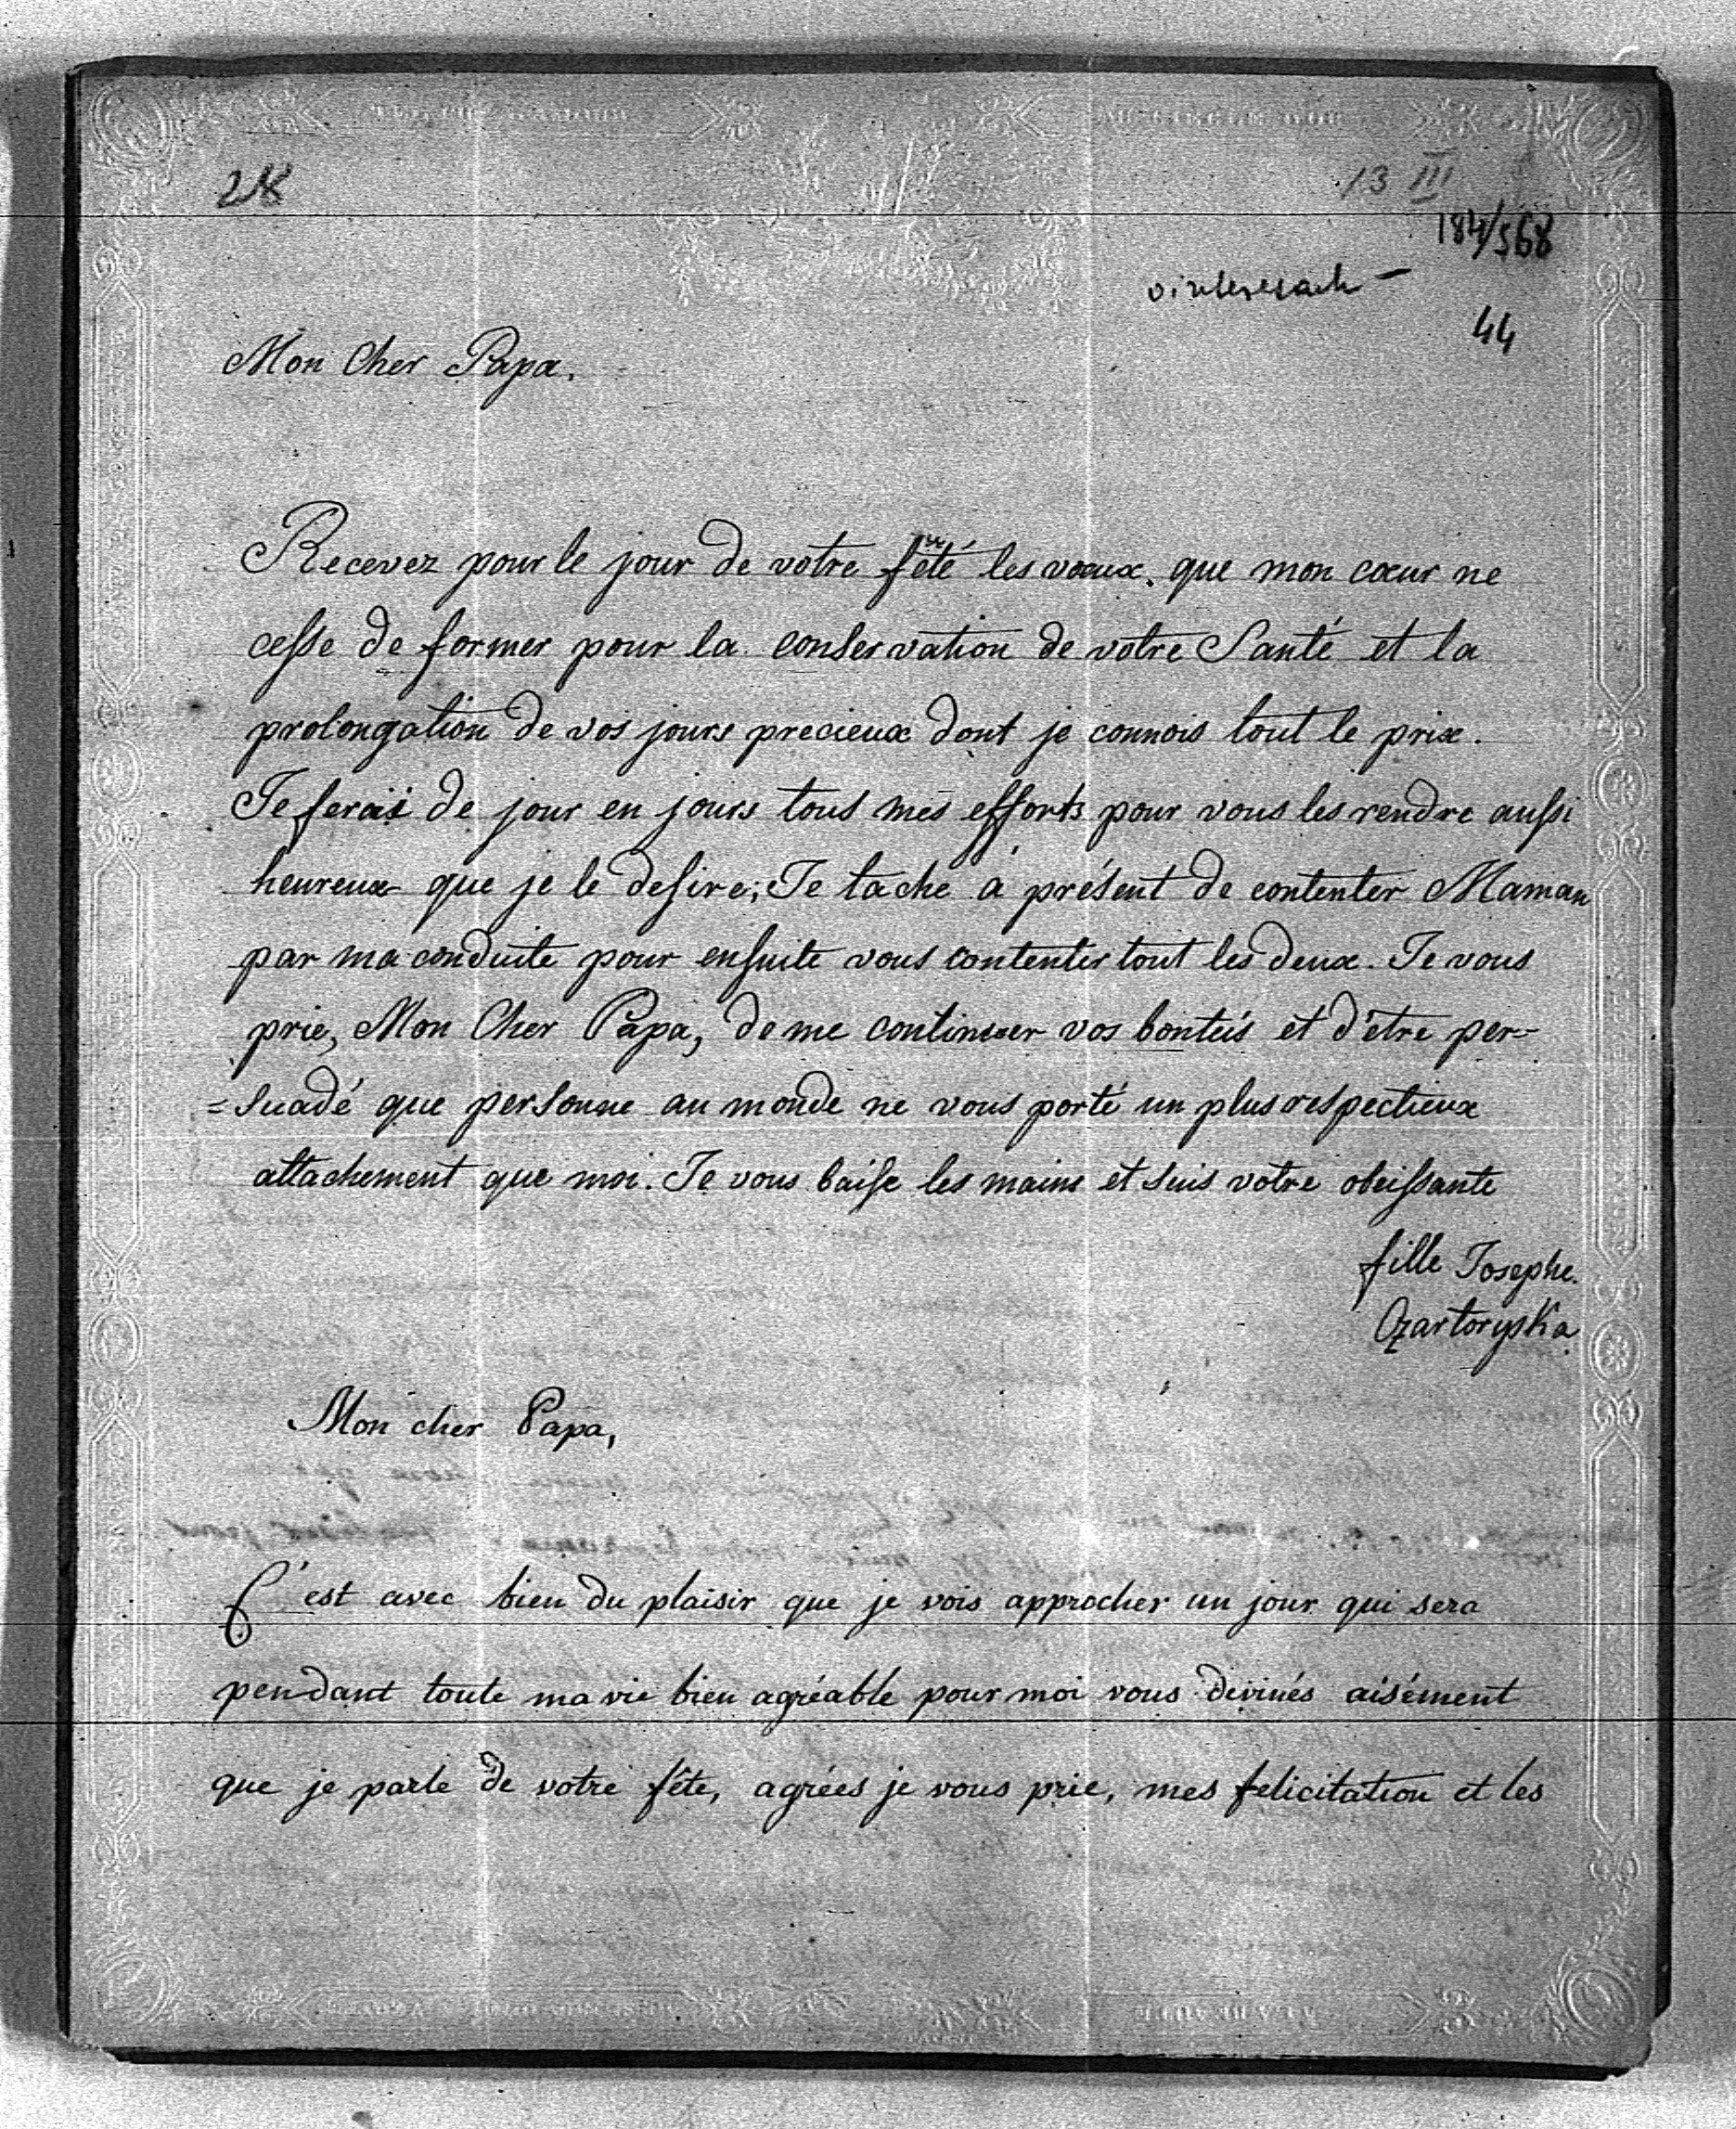 28
13 III
184/568
44
Mon Cher Papa.
Recevez pour le jour de votre fêté les voeux, que mon cœur ne
cesse de former pour la conservation de votre Santé et la
prolongation de vos jours precieux dont je connois tout le prix.
Je ferai de jour en jours tous mes efforts pour vous les rendre aussi
heureux que je le desire; Je tache à présent de contenter Maman
par ma conduite pour ensuite vous contenter tout les deux. Je vous
prie, Mon Cher Papa, de me continuer vos bontés et d'être per-
=suadé que personne au monde ne vous porté un plus respectieux
attachement que moi. Je vous baise les mains et suis votre obeissante
fille Josephe.
Czartoryska.
Mon cher Papa,
C'est avec bien du plaisir que je vois approcher un jour qui sera
pendant toute ma vie bien agréable pour moi vous devinés aisément
que je parle de votre fête, agrées je vous prie, mes felicitation et les